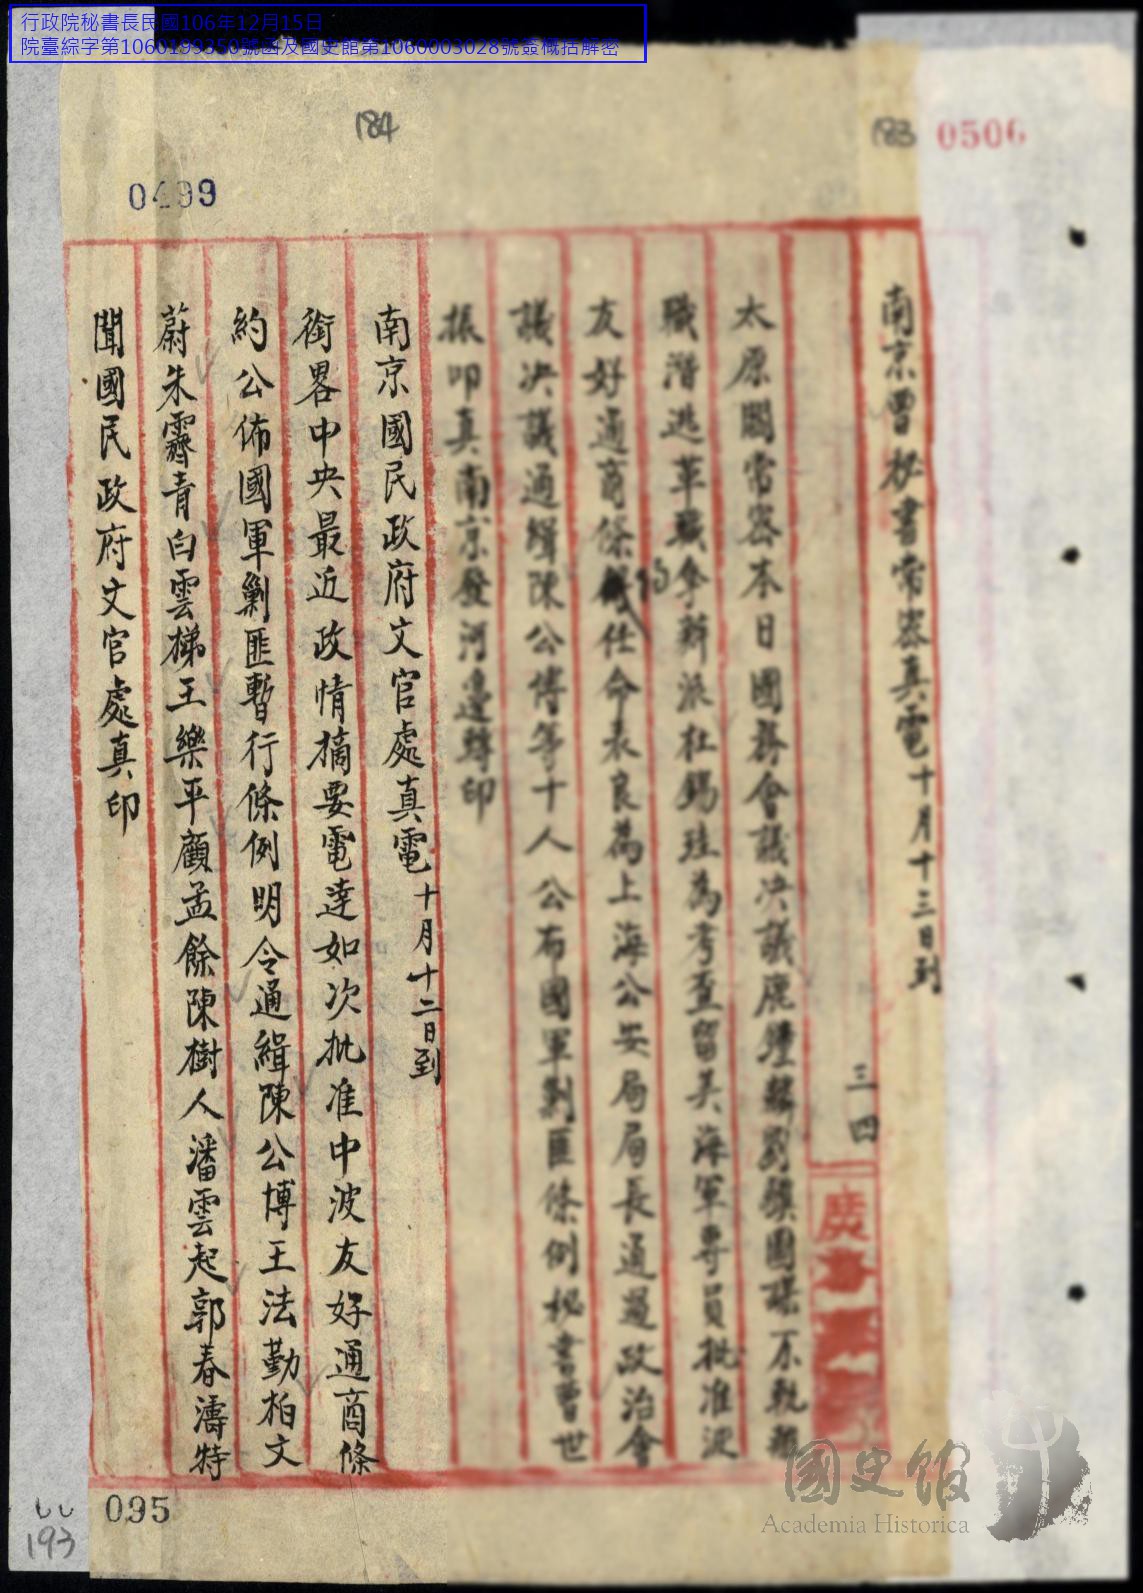 行政院秘書長民國106年12月15日
院臺綜字第1060199350號函及國史館第1060003028號簽概括解密
184
183
0506
0499
南京曹秘書常密真電十月十三日到
三四
太原閻常密本日國務會議決議鹿鍾麟劉驥圖謀不軌棄
職潛逃革職拿辦派杜錫珪為考查留美海軍專員批准波
友好通商條約任命袁良為上海公安局局長通過政治會
議決議通緝陳公博等十人公布國軍剿匪條例秘書曹世
振叩真南京發河邊轉印
南京國民政府文官處真電十月十二日到
銜畧中央最近政情摘要電達如次批准中波友好通商條
約公佈國軍剿匪暫行條例明令通緝陳公博王法勤柏文
蔚朱霽青白雲梯王樂平顧孟餘陳樹人潘雲起郭春濤特
聞國民政府文官處真印
095
193
國史館
Academia Historica